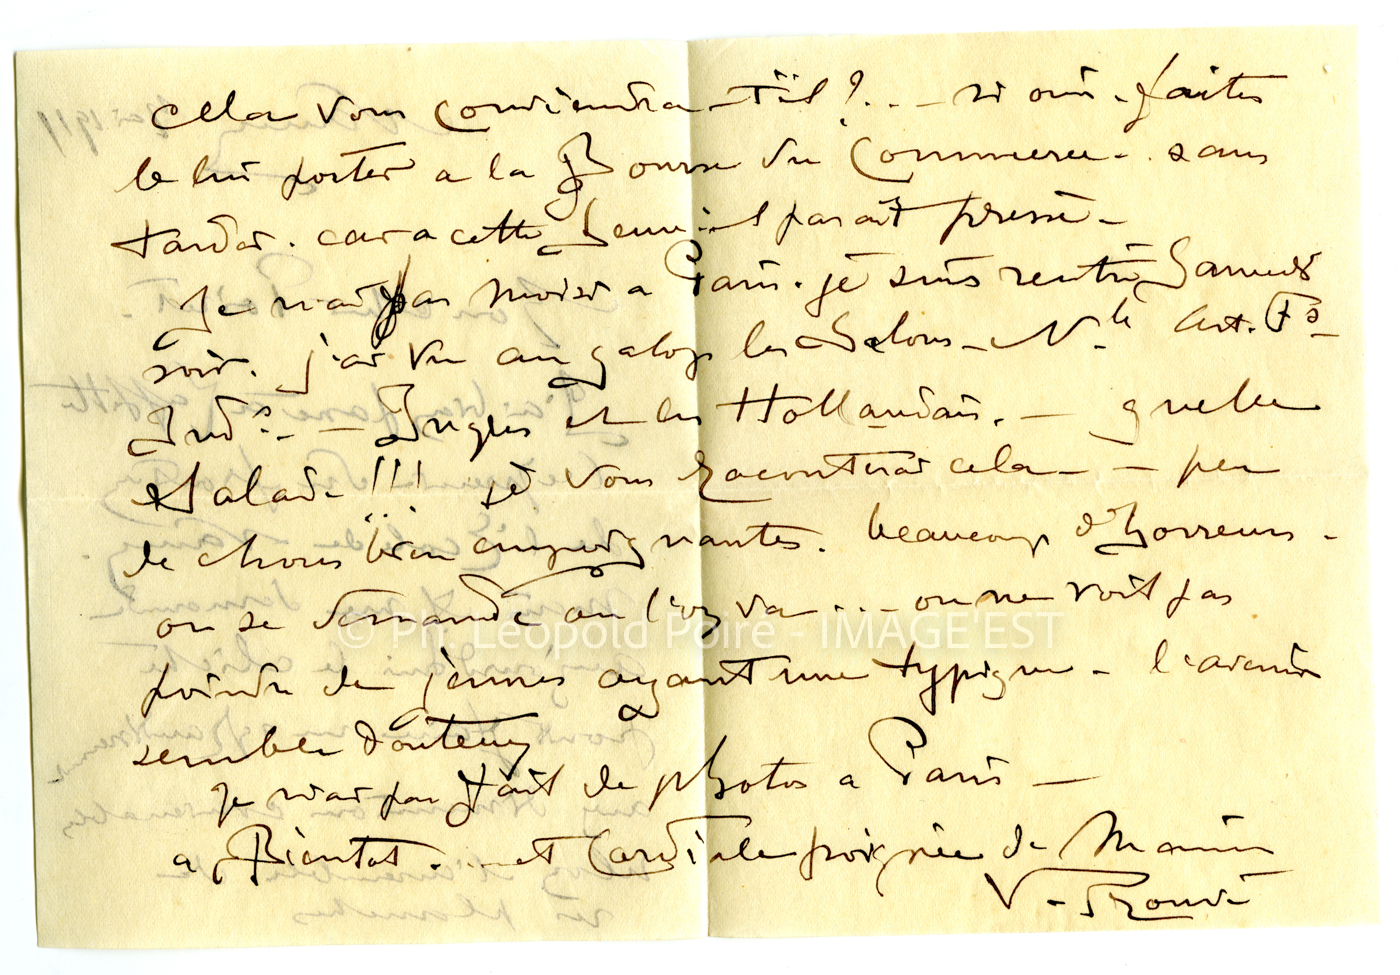 cela vous conviendra-t-il ?... – si oui – faites
le lui porter a la Bourse du Commerce – sans
tarder. car a cette heure il parait pressé –
Je n'ai pas moisi a Paris. je suis rentré Samedi
soir. j'ai vu au galop les Salons – Nle Art. Fs –
Inds – Ingres et les Hollandais. – quelle
Salade !!! je vous raconterai cela – – peu
de choses bien empoignantes. beaucoup d'horreurs –
on se demande ou l'on va ... on ne voit pas
poindre de jeunes ayant une typique – l'avenir
semble douteux
je n'ai pas fait de photos a Paris –
a Bientot. – et Cordiale poignée de Main
V. Prouvé
© Ph. Léopold Poiré - IMAGE'EST